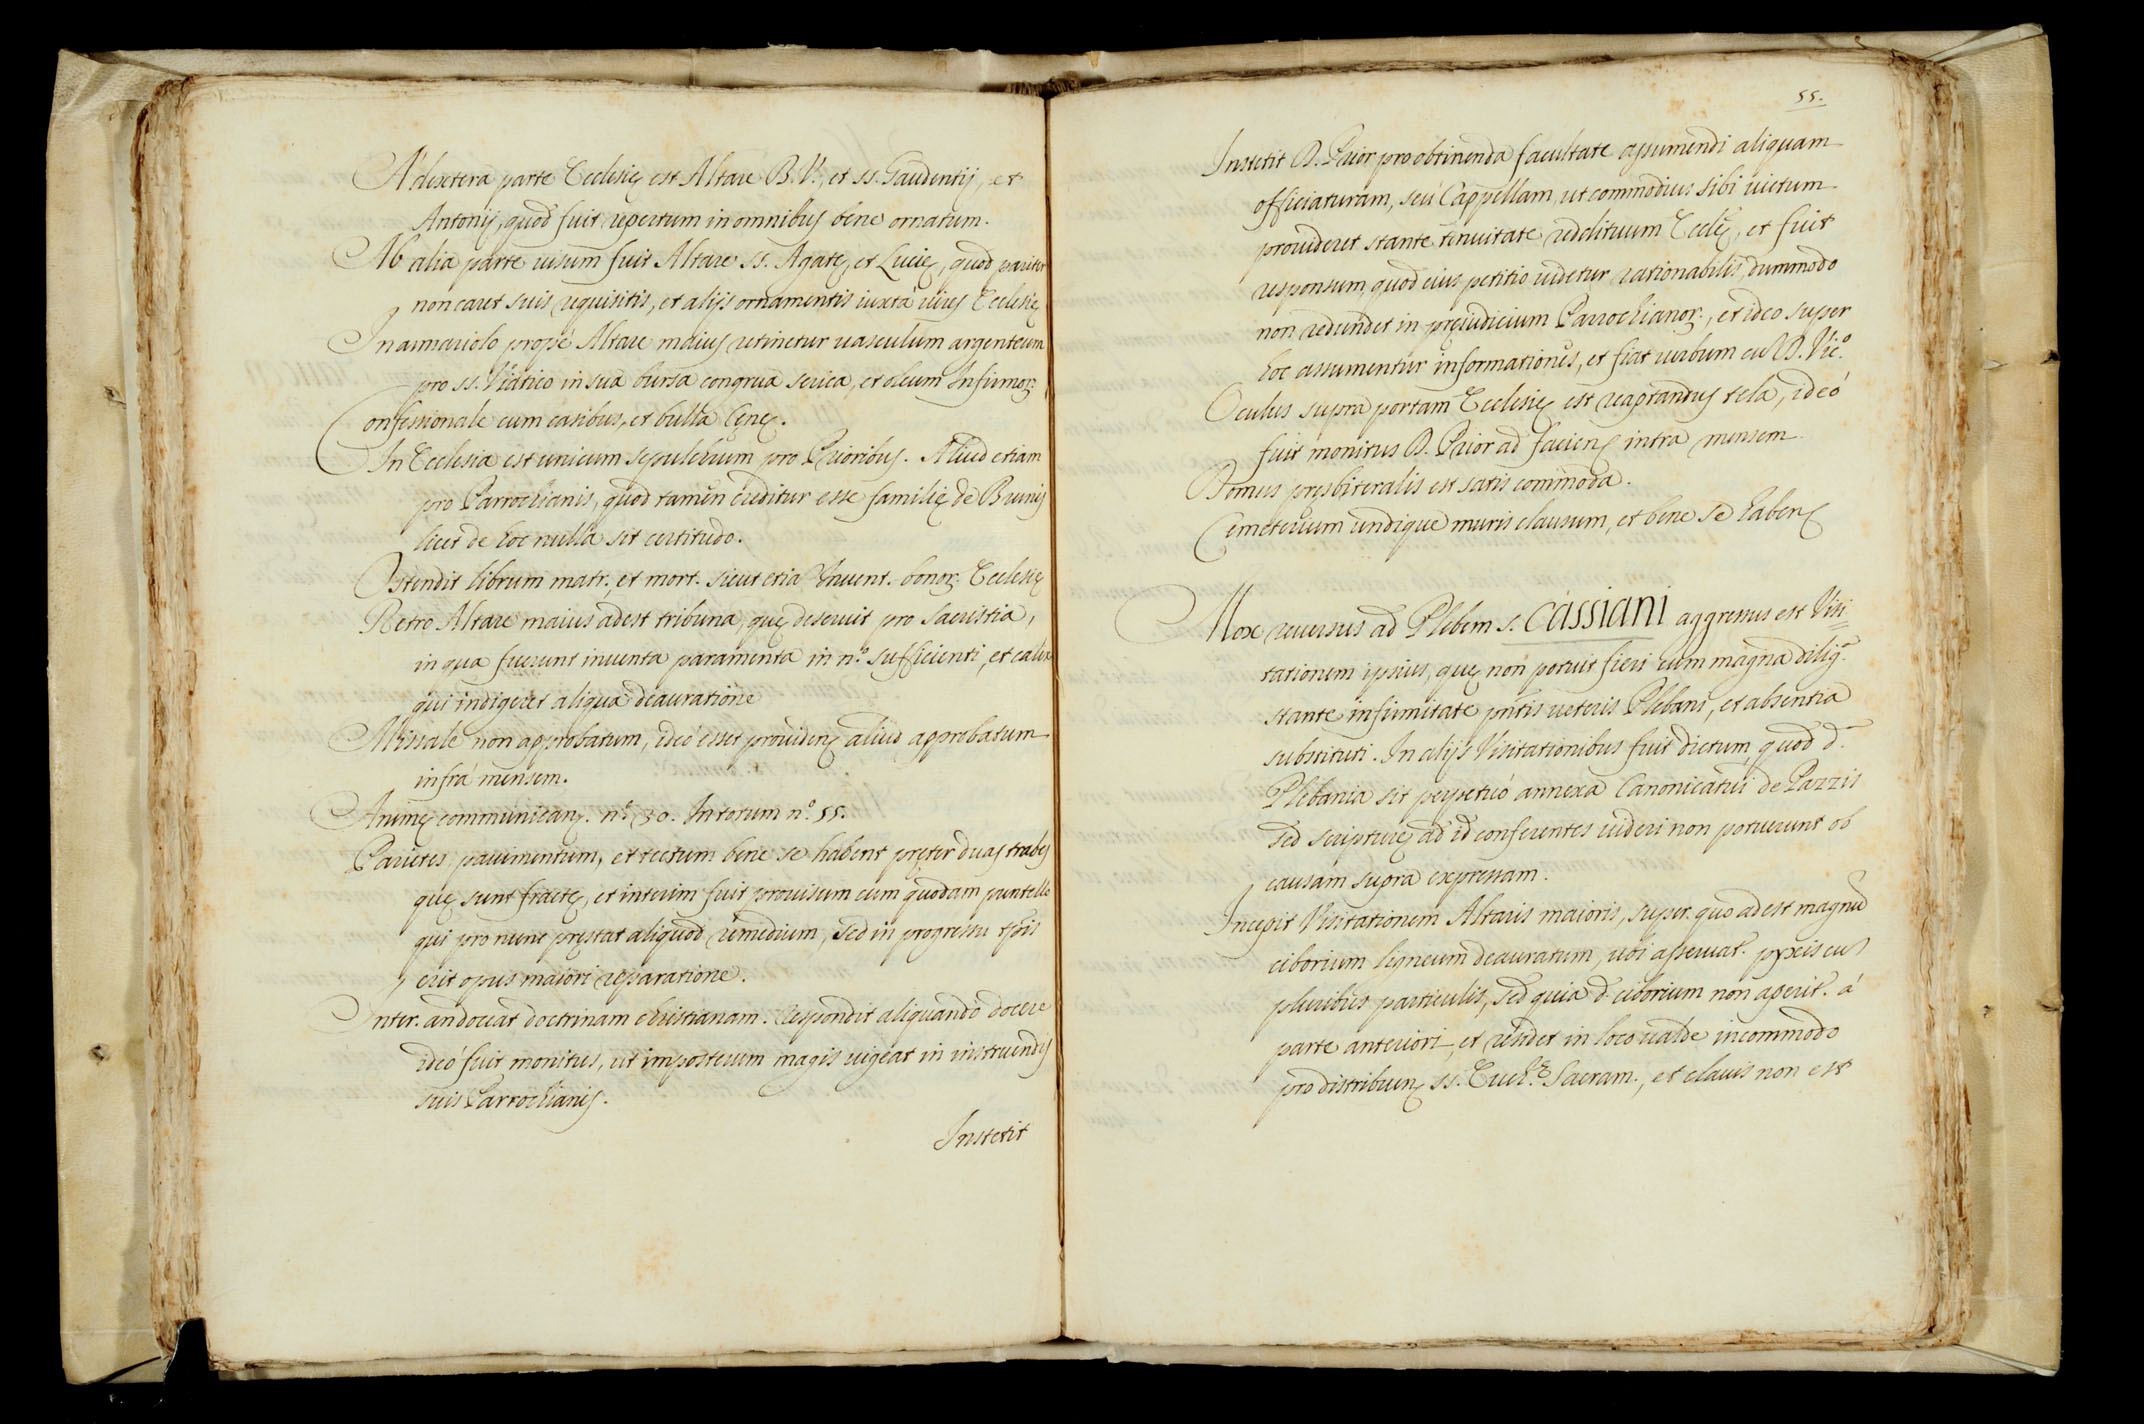 A' dextera parte Ecclesię est Altare B. V., et ss. Gaudentij, et
Antonij, quod fuit repertum in omnibus bene ornatum.
Ab alia parte uisum fuit Altare ss. Agatę, et Lucię, quod pariter
non caret suis requisitis, et alijs ornamentis iuxta uires Ecclesię
In armariolo propè Altare maius retinetur uasculum argenteum
pro ss. Viatico in sua bursa congrua serica, et oleum Infirmor:
Confessionale cum casibus, et bulla Cęnę.
In Ecclesia est unicum sepulcrum pro Prioribus. Aliud etiam
pro Parrochianis, quod tamen creditur esse familię de Brunis
licet de hoc nulla sit certitudo.
Ostendit librum matr., et mort. sicut etiã Inuent. bonor. Ecclesię
Retro Altare maius adest tribuna, quę deseruit pro sacristia,
in qua fuerunt inuenta paramenta in n.º sufficienti, et calix
qui indigeret aliqua deauratione
Missale non approbatum, ideò esset prouidenᶎ aliud approbatum
infrà mensem.
Animę communicanᶎ. n.º 30. In totum n.º 55.
Parietes pauimentum, et tectum bene se habent pręter duas trabes
quę sunt fractę, et interim fuit prouisum cum quodam puntello
qui pro nunc pręstat aliquod remedium, sed in progressu tp̃is
erit opus maiori reparatione.
Inter. an doceat doctrinam christianam. Respondit aliquando docere
ideò fuit monitus, ut imposterum magis uigeat in instruendis
suis Parrochianis.
Institit
55.
Institit D. Prior pro obtinenda facultate assumendi aliquam
officiaturam, seù Cappellam, ut commodius sibi uictum
prouideret stante tenuitate reddituum Ecclę, et fuit
responsum, quod eius petitio uidetur rationabilis, dummodo
non redundet in pręiudicium Parrochianor., et ideo super
hoc assumentur informationes, et fiat uerbum cũ D. Vic.º
Oculus supra portam Ecclesię est reaptandus tela, ideò
fuit monitus D. Prior ad facienᶎ intra mensem.
Domus pręsbiteralis est satis commoda.
Cemeterium undique muris clausum, et bene se habenᶎ
Mox reuersus ad Plebem s. Cassiani aggressus est Visi=
tationem ipsius, quę non potuit fieri cum magna dilig.ª
stante infirmitate pñtis ueteris Plebani, et absentia
substituti. In alijs Visitationibus fuit dictum, quod d.ª
Plebania sit perpetuò annexa Canonicatui de Pazzis
sed scripturę ad id conferentes uideri non potuerunt ob
causam supra expressam.
Incepit Visitationem Altaris maioris, super quo adest magnũ
ciborium ligneum deauratum, ubi asseruat. pyxis cũ
pluribus particulis, sed quia d. ciborium non aperit. à
parte anteriori, et residet in loco ualde incommodo
pro distribuenᶎ ss. Euch.ę Sacram., et clauis non est